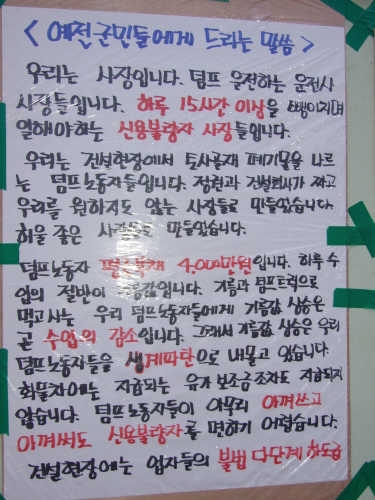 < 예천 군민들에게 드리는 말씀 >
우리는 사장입니다. 덤프 운전하는 운전사
사장들입니다. 하루 15시간 이상을 뺑이치며
일해야하는 신용불량자 사장들입니다.
우리는 건설현장에서 토사골재 폐기물을 나르
는 덤프노동자들입니다. 정권과 건설회사가 짜고
우리를 원하지도 않는 사장들로 만들었습니다.
허울 좋은 사장들로 만들었습니다.
덤프노동자 평균부채 4,000만원입니다. 하루 수
입의 절반이 기름값입니다. 기름과 덤프트럭으로
먹고사는 우리 덤프노동자들에게 기름값 상승은
곧 수입의 감소입니다. 그래서 기름값 상승은 우리
덤프노동자들을 생계파탄으로 내몰고 있습니다.
화물차에는 지급되는 유가 보조금조차도 지급되지
않습니다. 덤프노동자들이 아무리 아껴쓰고
아껴써도 신용불량자를 면하기 어렵습니다.
건설현장에는 업자들의 불법 다단계 하도급